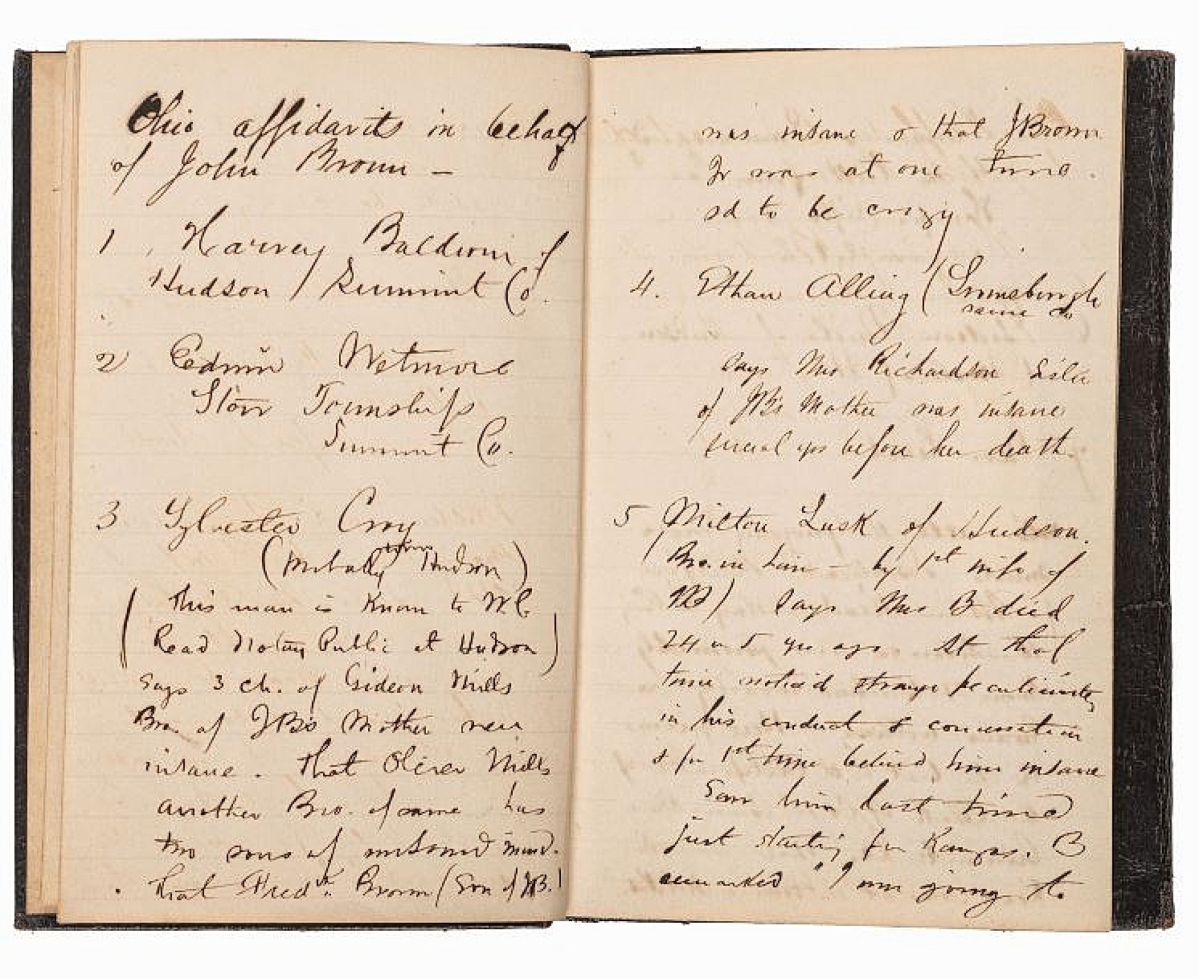 Ohio affidavits in behalf
of John Brown –
1. Harvey Baldwin of
Hudson / Summit Co.
2 Edwin Wetmore
Stow Township
Summit Co.
3 Sylvester
( Hudson)
(This man is Known to W.C.
Read Notary Public at Hudson)
Says 3 ch. of Gideon Mills
Bro. of JB's Mother were
insane. That Oliver Mills
another Bro. of same has
two sons of unsound mind.
That Fred'k. Brown (Son of JB.)
was insane & that JBrown
Jr was at one time
sd to be crazy
4. Ethan Alling (
same Co
Says Mrs Richardson Sister
of JB's Mother was insane
several yrs before her death.
5 Milton Lusk of Hudson.
(Bro. in law – by 1st wife of
JB) Says Mrs B died
24 or 5 yrs ago. At that
time noticed strange peculiarities
in his conduct & conversation
& for 1st time believed him insane
Saw him last time
just starting for Kansas. B
remarked "I am going to